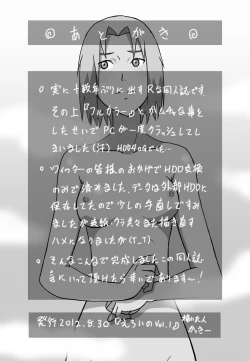 ◎あとがき◎
○実に十数年ぶりに出すRな同人誌です
その上『フルカラー』とかムチャな事を
したせいでPCが一度クラッシュして
しまいました(汗)HDD4のGでした…
○ツイッターの皆様のおかげでHDD交換
のみで済みました、データは外部HDDに
保存してたので少しの手直しですみ
ましたが表紙・ウラ共々また描き直す
ハメになりましたが(T_T)
○そんなこんなで完成しましたこの同人誌
気にいって頂けたら幸いであります〜!
発行2012.8.30『えろいのvol.1』
描いた人